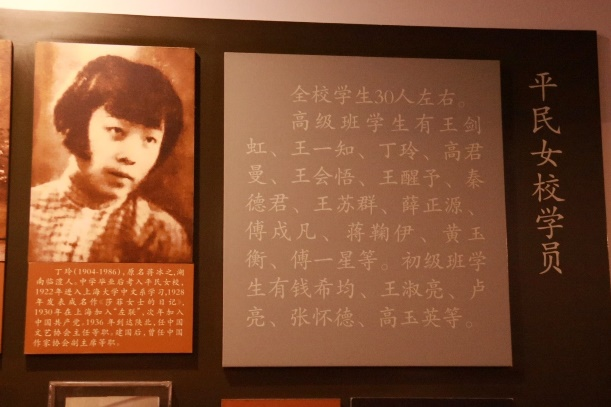 平民女校学员
全校学生30人左右。
高级班学生有王剑
虹、王一知、丁玲、高君
曼、王会悟、王醒予、秦
德君、王苏群、薛正源、
傅戍凡、蒋鞠伊、黄玉
衡、傅一星等。初级班学
生有钱希均、王淑亮、卢
亮、张怀德、高玉英等。
丁玲(1904-1986),原名蒋冰之,湖
南临澧人。中学毕业后考入平民女校,
1922年进入上海大学中文系学习,1928
年发表成名作《莎菲女士的日记》,
1930年在上海加入"左联",次年加入
中国共产党。1936年到达陕北,任中国
文艺协会主任等职。建国后,曾任中国
作家协会副主席等职。